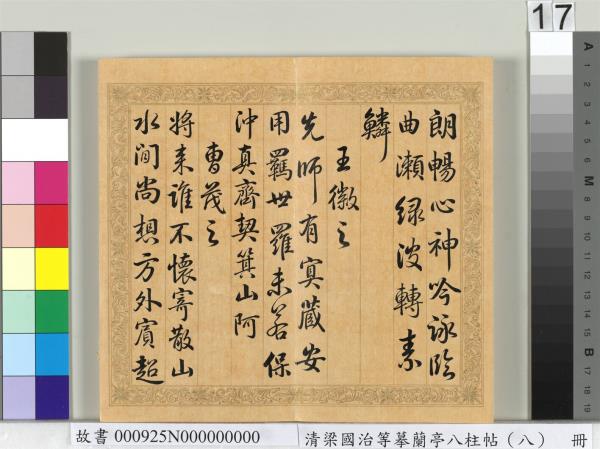 朗暢心神吟詠臨
曲瀨綠波轉素
鱗
王徽之
先師有冥藏安
用羈世羅未若保
沖真齊契箕山阿
曹茂之
時來誰不懷寄散山
水間尚想方外賓超
17
A
1
2
3
4
5
6
M
8
9
10
11
12
13
14
15
B
17
18
19
故書 000925N000000000
清梁國治等摹蘭亭八柱帖（八） 冊